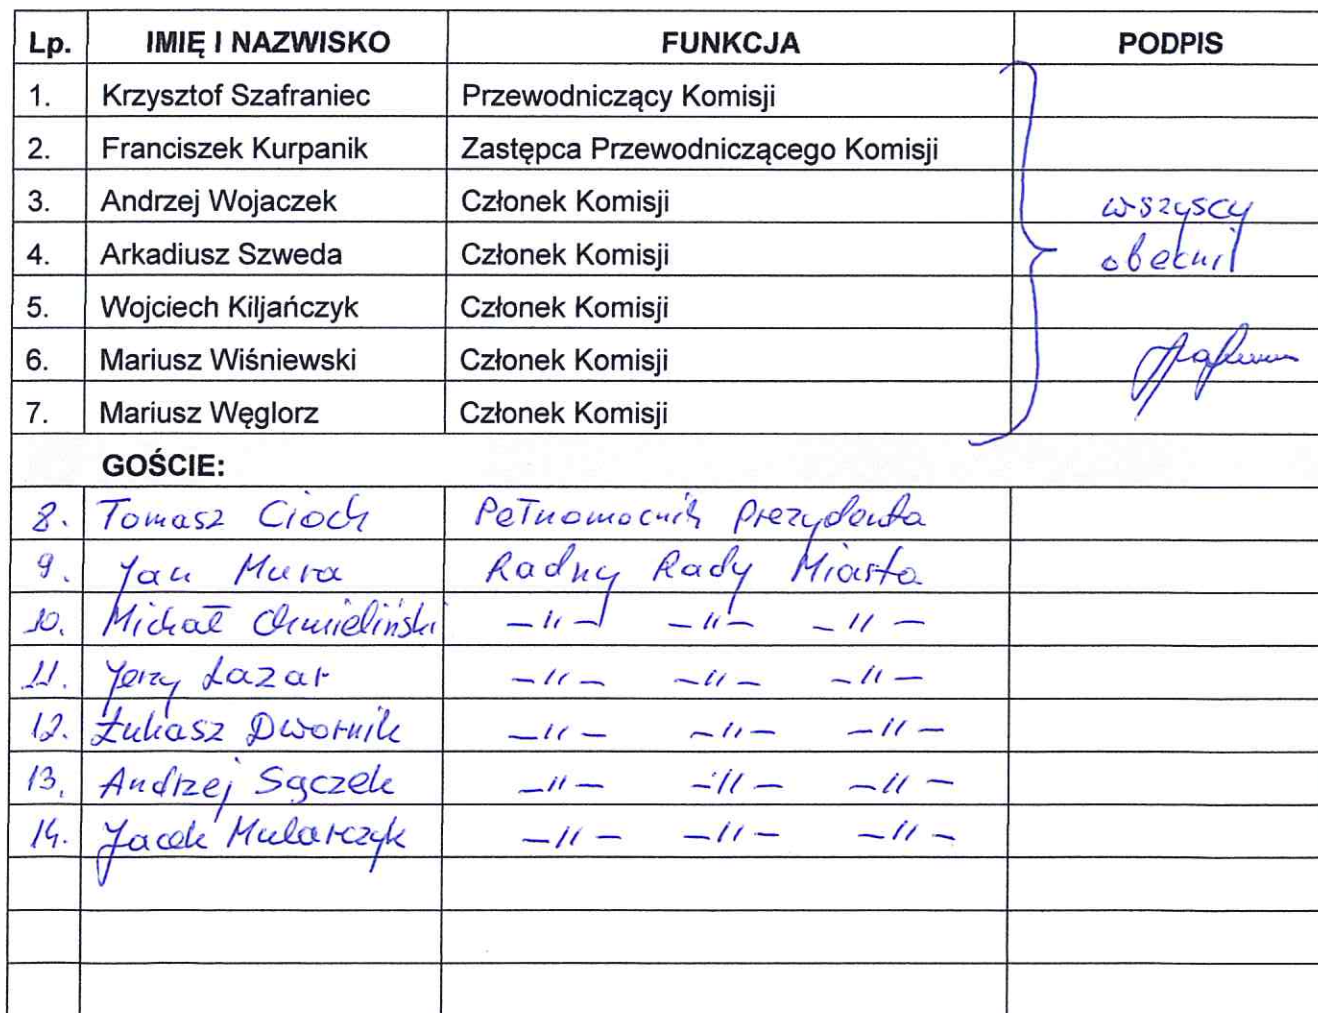 Lp. IMIĘ I NAZWISKO FUNKCJA PODPIS
1. Krzysztof Szafraniec Przewodniczący Komisji
2. Franciszek Kurpanik Zastępca Przewodniczącego Komisji
3. Andrzej Wojaczek Członek Komisji wszyscy
4. Arkadiusz Szweda Członek Komisji obecni
5. Wojciech Kiljańczyk Członek Komisji
6. Mariusz Wiśniewski Członek Komisji
7. Mariusz Węglorz Członek Komisji
GOŚCIE:
8. Tomasz Cioch Pełnomocnik Prezydenta
9. Jan Mura Radny Rady Miasta
10. Michał Chmieliński –〃– –〃– –〃–
11. Jerzy Łazar –〃– –〃– –〃–
12. Łukasz Dwornik –〃– –〃– –〃–
13. Andrzej Sączek –〃– –〃– –〃–
14. Jacek Mularczyk –〃– –〃– –〃–